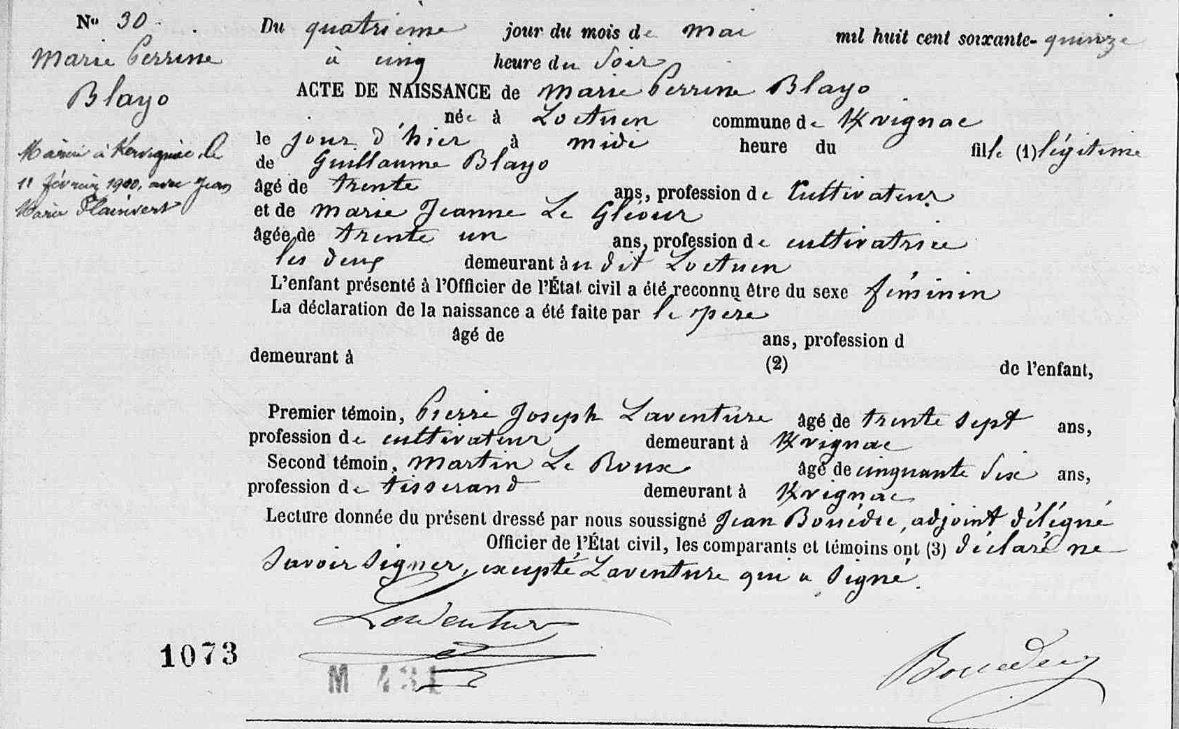 N° 30.
Marie Perrine
Blayo
Mariée à Kervignac le
11 février 1900, avec Jean
Marie Plainvert
Du quatrième jour du mois de mai mil huit cent soixante-quinze
à cinq heure du Soir
ACTE DE NAISSANCE de Marie Perrine Blayo
née à Loctuen commune de Kvignac
le jour d'hier à midi heure du fille (1) légitime
de Guillaume Blayo
âgé de trente ans, profession de Cultivateur
et de Marie Jeanne Le Gleour
âgée de trente un ans, profession de cultivatrice
les deux demeurant au dit Loctuen
L'enfant présenté à l'Officier de l'État civil a été reconnu être du sexe féminin
La déclaration de la naissance a été faite par le père
âgé de ans, profession d
demeurant à (2) de l'enfant,
Premier témoin, Pierre Joseph Laventure âgé de trente sept ans,
profession de cultivateur demeurant à Kvignac
Second témoin, Martin Le Roux âgé de cinquante six ans,
profession de tisserand demeurant à Kvignac
Lecture donnée du présent dressé par nous soussigné Jean Bouédec, adjoint délégué
Officier de l'État civil, les comparants et témoins ont (3) déclaré ne
Savoir Signer, excepté Laventure qui a signé.
Laventure
1073
M 431
Bouedec